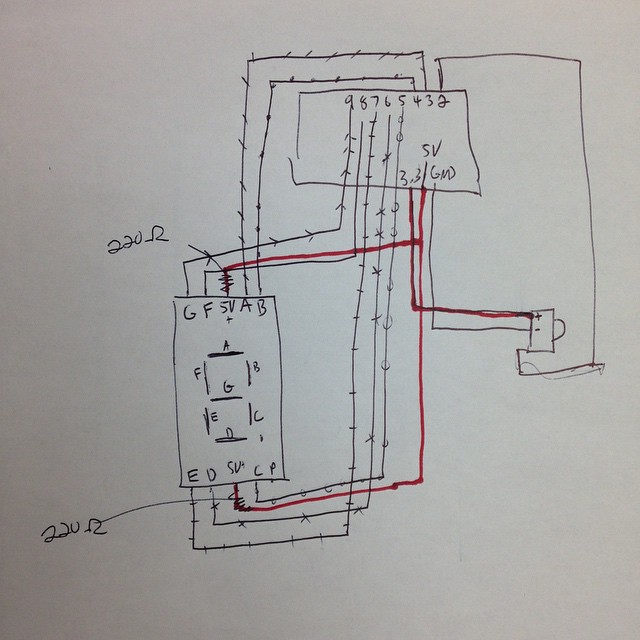 9 8 7 6 5 4 3 2
5V
3.3 GND
220Ω
G F 5V A B
+
+
-
A
F B
G
E C
D
E D 5V+ C P
220Ω